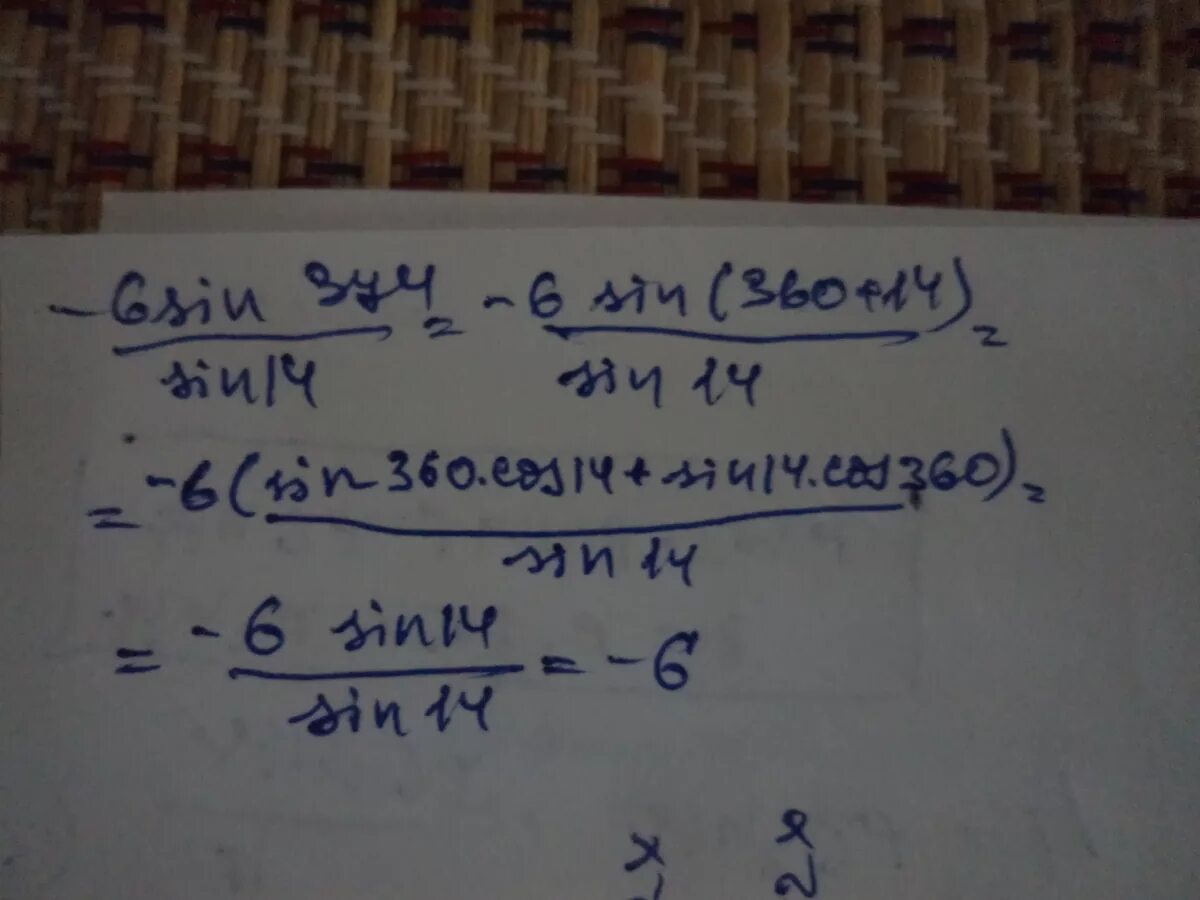 -6sin 374 = -6 sin(360+14) =
sin14 sin 14
= -6(sin360.cos14+sin14.cos360) =
sin 14
= -6 sin14 = -6
sin 14
x
2